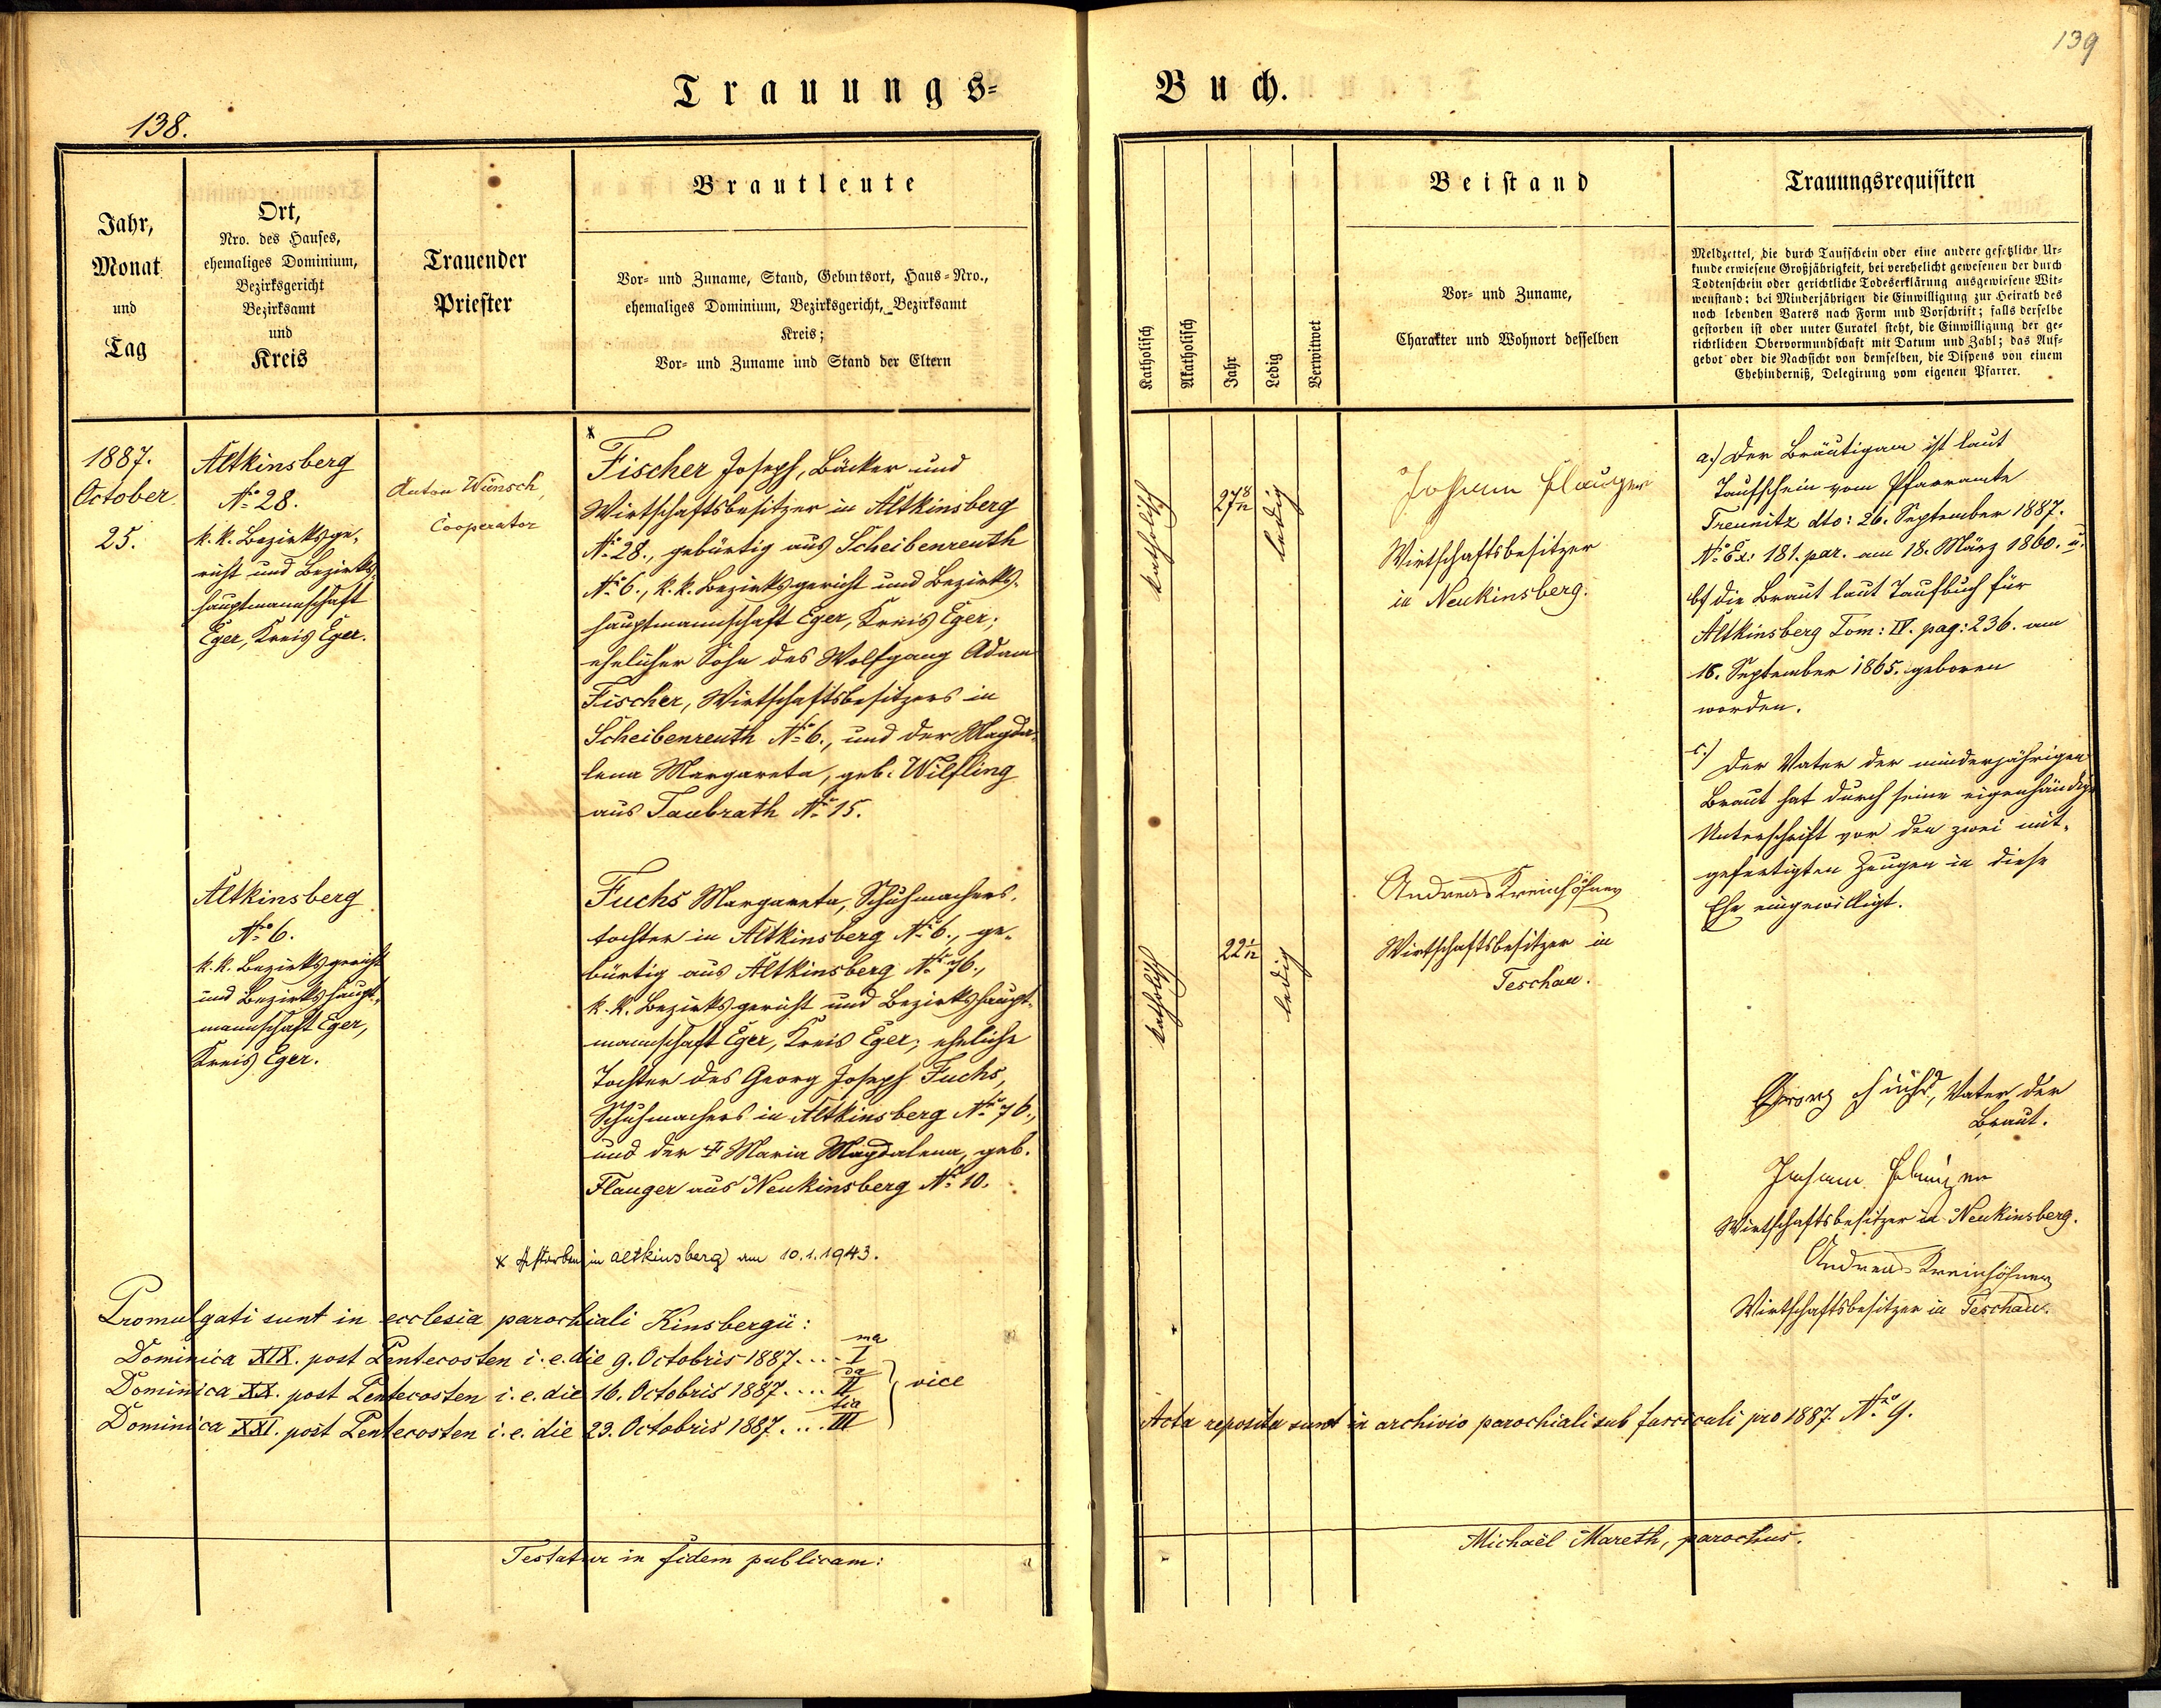 138.
Trauungs-
Jahr,
Monat
und
Tag
Ort,
Nro. des Hauses,
ehemaliges Dominium,
Bezirksgericht
Bezirksamt
und
Kreis
Trauender
Priester
Brautleute
Vor- und Zuname, Stand, Geburtsort, Haus-Nro.,
ehemaliges Dominium, Bezirksgericht, Bezirksamt
Kreis;
Vor- und Zuname und Stand der Eltern
1887.
October
25.
Altkinsberg
No. 28.
k. k. Bezirksge-
richt und Bezirks-
hauptmannschaft
Eger, Kreis Eger.
Anton Wünsch,
Cooperator
x
Fischer Joseph, Bäcker und
Wirtschaftsbesitzer in Altkinsberg
No. 28., gebürtig aus Scheibenreuth
No. 6., k. k. Bezirksgericht und Bezirks-
hauptmannschaft Eger, Kreis Eger;
ehelicher Sohn des Wolfgang Adam
Fischer, Wirtschaftsbesitzers in
Scheibenreuth No. 6., und der Magda-
lena Margareta, geb. Wilfling
aus Taubrath No. 15.
Altkinsberg
No. 6.
k. k. Bezirksgericht
und Bezirkshaupt-
mannschaft Eger,
Kreis Eger.
Fuchs Margareta, Schuhmachers-
tochter in Altkinsberg No. 6., ge-
bürtig aus Altkinsberg No. 76.,
k. k. Bezirksgericht und Bezirkshaupt-
mannschaft Eger, Kreis Eger; eheliche
Tochter des Georg Joseph Fuchs,
Schuhmachers in Altkinsberg No. 76.,
und der † Maria Magdalena, geb.
Flauger aus Neukinsberg No. 10.
x Gestorben in Altkinsberg am 10.1.1943.
Promulgati sunt in ecclesia parochiali Kinsbergii:
Dominica XIX. post Pentecosten i. e. die 9. Octobris 1887.... I ma
Dominica XX. post Pentecosten i. e. die 16. Octobris 1887.... II da } vice
Dominica XXI. post Pentecosten i. e. die 23. Octobris 1887.... III tia
Testatur in fidem publicam:
139
Buch.
Katholisch
Akatholisch
Jahr
Ledig
Verwitwet
Beistand
Vor- und Zuname,
Charakter und Wohnort desselben
Trauungsrequisiten
Meldzettel, die durch Taufschein oder eine andere gesetzliche Ur-
kunde erwiesene Großjährigkeit, bei verehelicht gewesenen der durch
Todtenschein oder gerichtliche Todeserklärung ausgewiesene Wit-
wenstand; bei Minderjährigen die Einwilligung zur Heirath des
noch lebenden Vaters nach Form und Vorschrift; falls derselbe
gestorben ist oder unter Curatel steht, die Einwilligung der ge-
richtlichen Obervormundschaft mit Datum und Zahl; das Auf-
gebot oder die Nachsicht von demselben, die Dispens von einem
Ehehinderniß, Delegirung vom eigenen Pfarrer.
katholisch
27 8/12
ledig
Johann Flauger
Wirtschaftsbesitzer
in Neukinsberg.
katholisch
22 1/12
ledig
Andreas Kreinhöfner
Wirtschaftsbesitzer in
Teschau.
a.) Der Bräutigam ist laut
Taufschein vom Pfarramte
Treunitz dto: 26. September 1887.
No. Ex: 181. par. am 18. März 1860. u.
b/ die Braut laut Taufbuch für
Altkinsberg Tom: IV. pag: 236. am
18. September 1865. geboren
worden.
c.) Der Vater der minderjährigen
Braut hat durch seine eigenhändige
Unterschrift vor den zwei mit-
gefertigten Zeugen in diese
Ehe eingewilligt.
Georg Fuchs, Vater der
Braut.
Johann Flauger
Wirtschaftsbesitzer in Neukinsberg.
Andreas Kreinhöfner
Wirtschaftsbesitzer in Teschau.
Acta reposita sunt in archivio parochiali sub fasciculi pro 1887. No. 9.
Michaël Mareth, parochus.